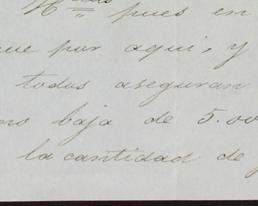 pues en
que por aqui, y
todos aseguran
no baja de 5.00
la cantidad de